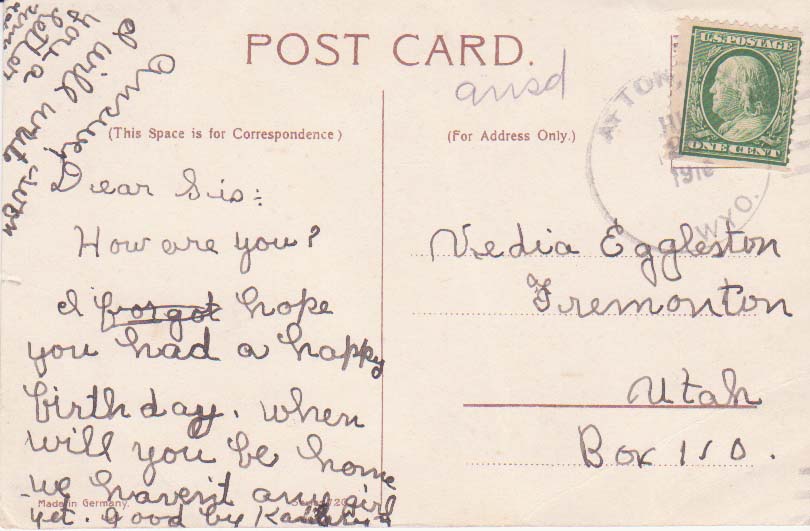 POST CARD.
(This Space is for Correspondence)
(For Address Only.)
ansd
U.S. POSTAGE
ONE CENT
AFTON,
WYO.
Dear Sis:
How are you?
I forgot hope
you had a happy
birthday. When
will you be home
we haven't any girl
yet. Good by
Answer
I will write
you a
letter
soon
Vedia Eggleston
Fremonton
Utah
Box 110.
Made in Germany.